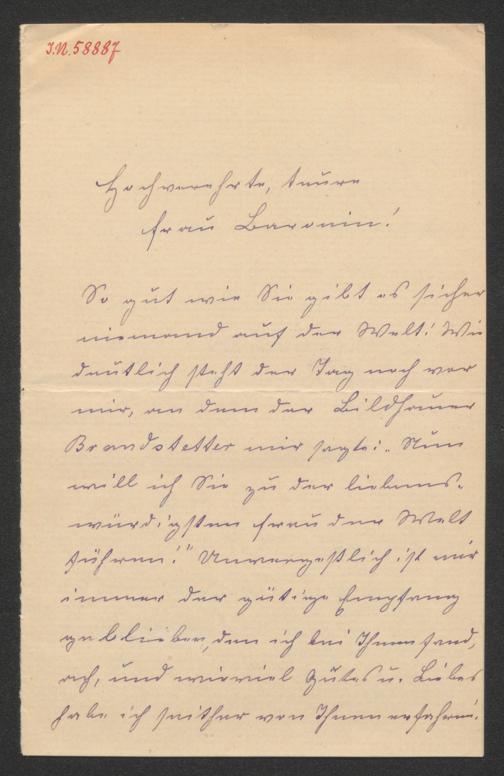 I.N. 58887
Hochverehrte, teure
Frau Baronin!
So gut wie Sie gibt es sicher
niemand auf der Welt! Wie
deutlich steht der Tag noch vor
mir, an dem der Bildhauer
Brandstetter mir sagte: „Nun
will ich Sie zu der liebens-
würdigsten Frau der Welt
führen!" Unvergeßlich ist mir
immer der gütige Empfang
geblieben, den ich bei Ihnen fand,
ach, und wieviel Gutes u. Liebes
habe ich seither von Ihnen erfahren!